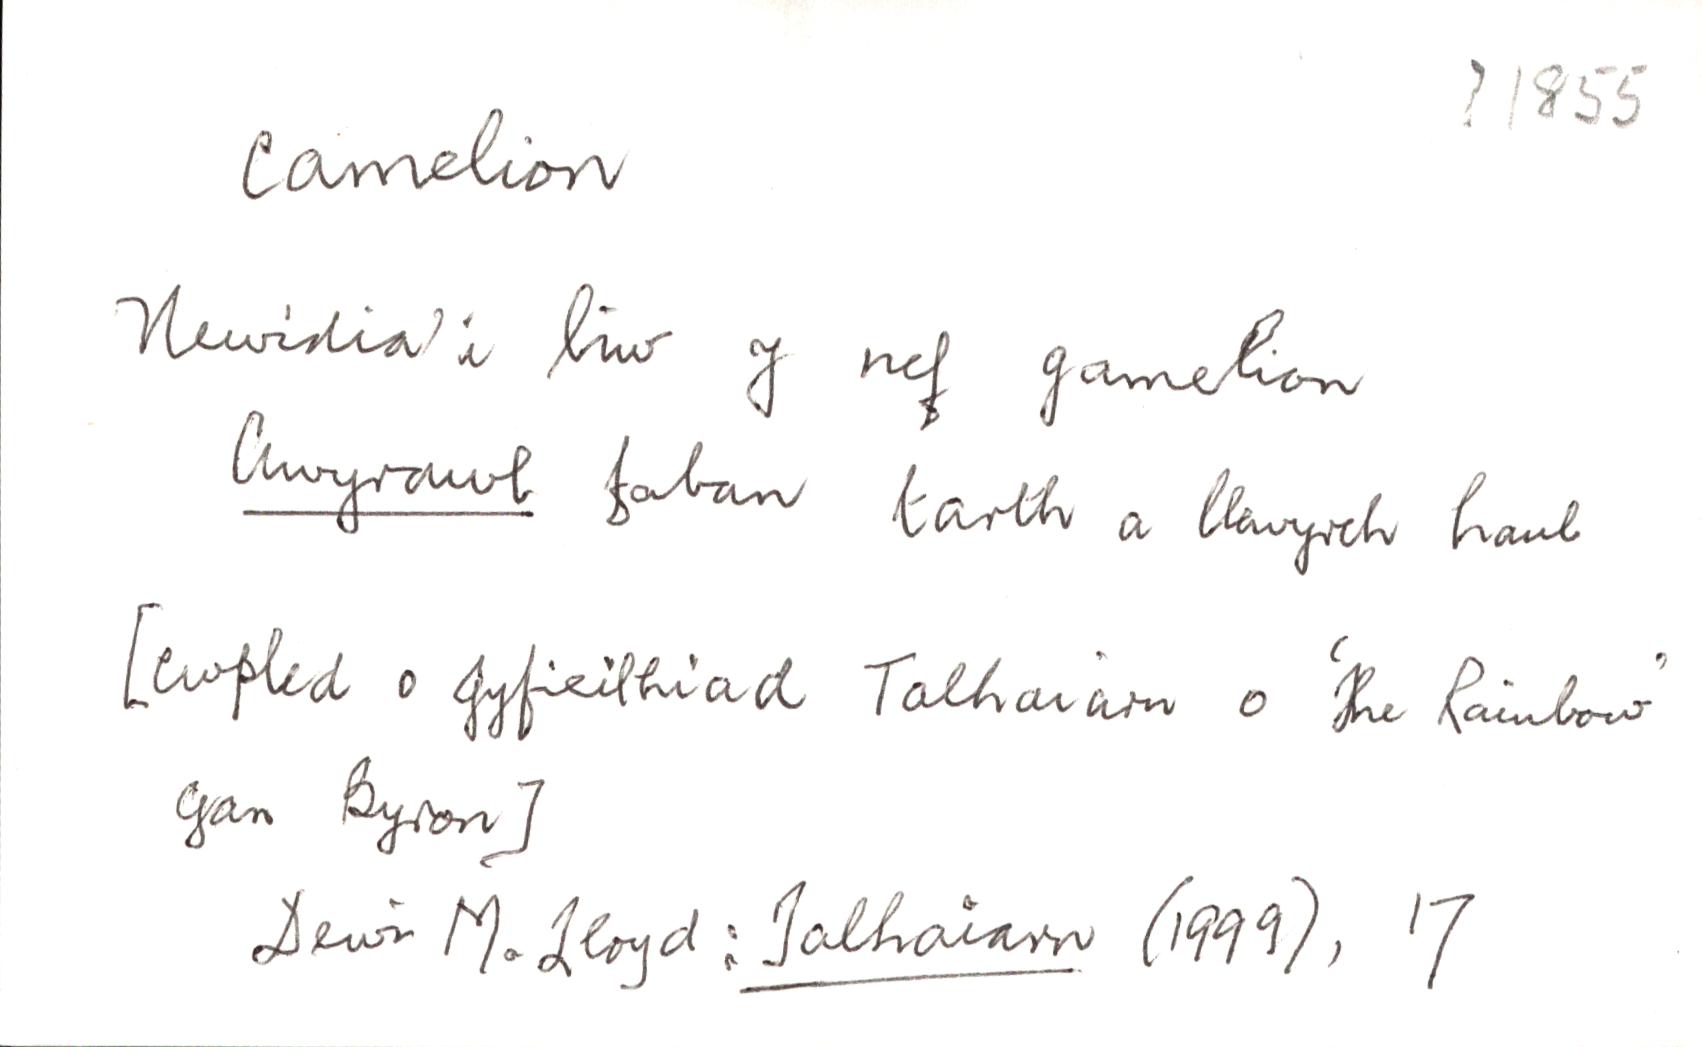 ? 1855
camelion
Newidia'i liw y nef gamelion
Awyrawl faban tarth a llewyrch haul
[cwpled o gyfieithiad Talhaiarn o 'The Rainbow'
gan Byron]
Dewi M. Lloyd: Talhaiarn (1999), 17